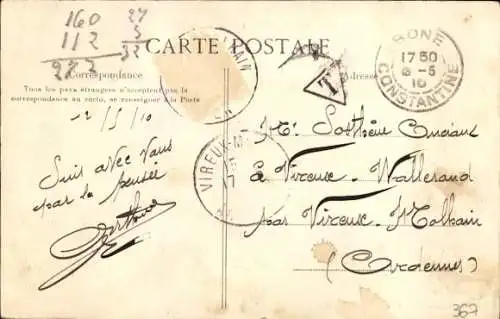 160 27
112 5
272 32
CARTE POSTALE
Correspondance
Tous les pays étrangers n'acceptent pas la
correspondance au recto, se renseigner à la Poste
Adresse
BONE
1750
6-5
10
CONSTANTINE
T
VIREUX-M
2/5/10
Suis avec vous
par la pensée
Berthe
Mr Sosthène
à Vireux-Wallerand
par Vireux-Molhain
(Ardennes)
367